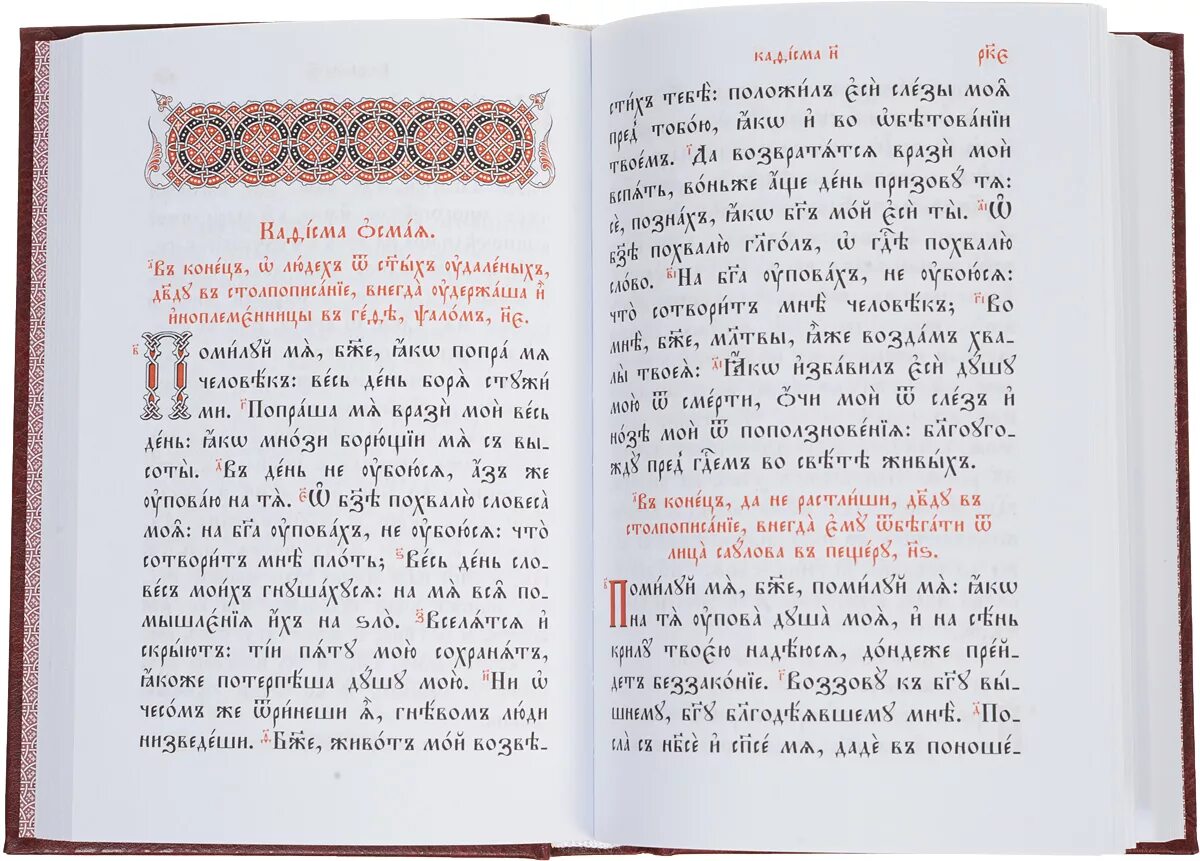 Каѳі́сма ѻ҆сма́ѧ.
а҃ Въ коне́цъ, ѡ҆ лю́дехъ ѿ ст҃ы́хъ ᲂу҆дале́ныхъ,
дв҃дꙋ въ столпописа́нїе, внегда̀ ᲂу҆держа́ша и҆̀
и҆ноплемє́нницы въ ге́ѳѣ, ѱало́мъ, н҃є.
в҃ Поми́лꙋй мѧ̀, бж҃е, ꙗ҆́кѡ попра́ мѧ
человѣ́къ: ве́сь де́нь борѧ̀ стꙋжи́
ми. г҃ Попра́ша мѧ̀ вразѝ моѝ ве́сь
де́нь: ꙗ҆́кѡ мно́зи борю́щїи мѧ̀ съ вы-
соты̀. д҃ Въ де́нь не ᲂу҆бою́сѧ, а҆́зъ же
ᲂу҆пова́ю на тѧ̀. є҃ Ѡ҆ бз҃ѣ похвалю̀ словеса̀
моѧ̑: на бг҃а ᲂу҆пова́хъ, не ᲂу҆бою́сѧ: что̀
сотвори́тъ мнѣ̀ пло́ть; ѕ҃ Ве́сь де́нь сло-
ве́съ мои́хъ гнꙋша́хꙋсѧ: на мѧ̀ всѧ̑ по-
мышлє́нїѧ и҆́хъ на ѕло̀. з҃ Вселѧ́тсѧ и҆
скры́ютъ: ті́и пѧ́тꙋ мою̀ сохранѧ́тъ,
ꙗ҆́коже потерпѣ́ша дꙋ́шꙋ мою̀. и҃ Ни ѡ҆
чесо́мъ же ѿри́неши ѧ҆̀, гнѣ́вомъ лю́ди
низведе́ши. ѳ҃ Бж҃е, живо́тъ мо́й возвѣ-
каѳі́сма и҃
рк҃є
сти́хъ тебѣ̀: положи́лъ є҆сѝ сле́зы моѧ̑
пред̾ тобо́ю, ꙗ҆́кѡ и҆ во ѡ҆бѣтова́нїи
твое́мъ. і҃ Да возвратѧ́тсѧ вразѝ моѝ
вспѧ́ть, во́ньже а҆́ще де́нь призовꙋ́ тѧ:
сѐ, позна́хъ, ꙗ҆́кѡ бг҃ъ мо́й є҆сѝ ты̀. а҃і Ѡ҆
бз҃ѣ похвалю̀ глаго́лъ, ѡ҆ гдⷭ҇ѣ похвалю̀
сло́во. в҃і На бг҃а ᲂу҆пова́хъ, не ᲂу҆бою́сѧ:
что̀ сотвори́тъ мнѣ̀ человѣ́къ; г҃і Во
мнѣ̀, бж҃е, мл҃твы, ꙗ҆̀же возда́мъ хва-
лы̀ твоеѧ̀: д҃і Ꙗ҆́кѡ и҆зба́вилъ є҆сѝ дꙋ́шꙋ
мою̀ ѿ сме́рти, ѻ҆́чи моѝ ѿ сле́зъ и҆
но́зѣ моѝ ѿ поползнове́нїѧ: благоꙋго-
ждꙋ̀ пред̾ гдⷭ҇емъ во свѣ́тѣ живы́хъ.
а҃ Въ коне́цъ, да не растли́ши, дв҃дꙋ въ
столпописа́нїе, внегда̀ є҆мꙋ̀ ѿбѣга́ти ѿ
лица̀ саꙋ́лова въ пеще́рꙋ, н҃ѕ.
в҃ Поми́лꙋй мѧ̀, бж҃е, поми́лꙋй мѧ̀: ꙗ҆́кѡ
на тѧ̀ ᲂу҆пова̀ дꙋша̀ моѧ̀, и҆ на сѣ́нь
крилꙋ̀ твоє́ю надѣ́юсѧ, до́ндеже пре́й-
детъ беззако́нїе. г҃ Воззовꙋ̀ къ бг҃ꙋ вы́-
шнемꙋ, бг҃ꙋ благодѣ́ѧвшемꙋ мнѣ̀. д҃ По-
сла̀ съ нб҃сѐ и҆ сп҃се́ мѧ, дадѐ въ поноше́-